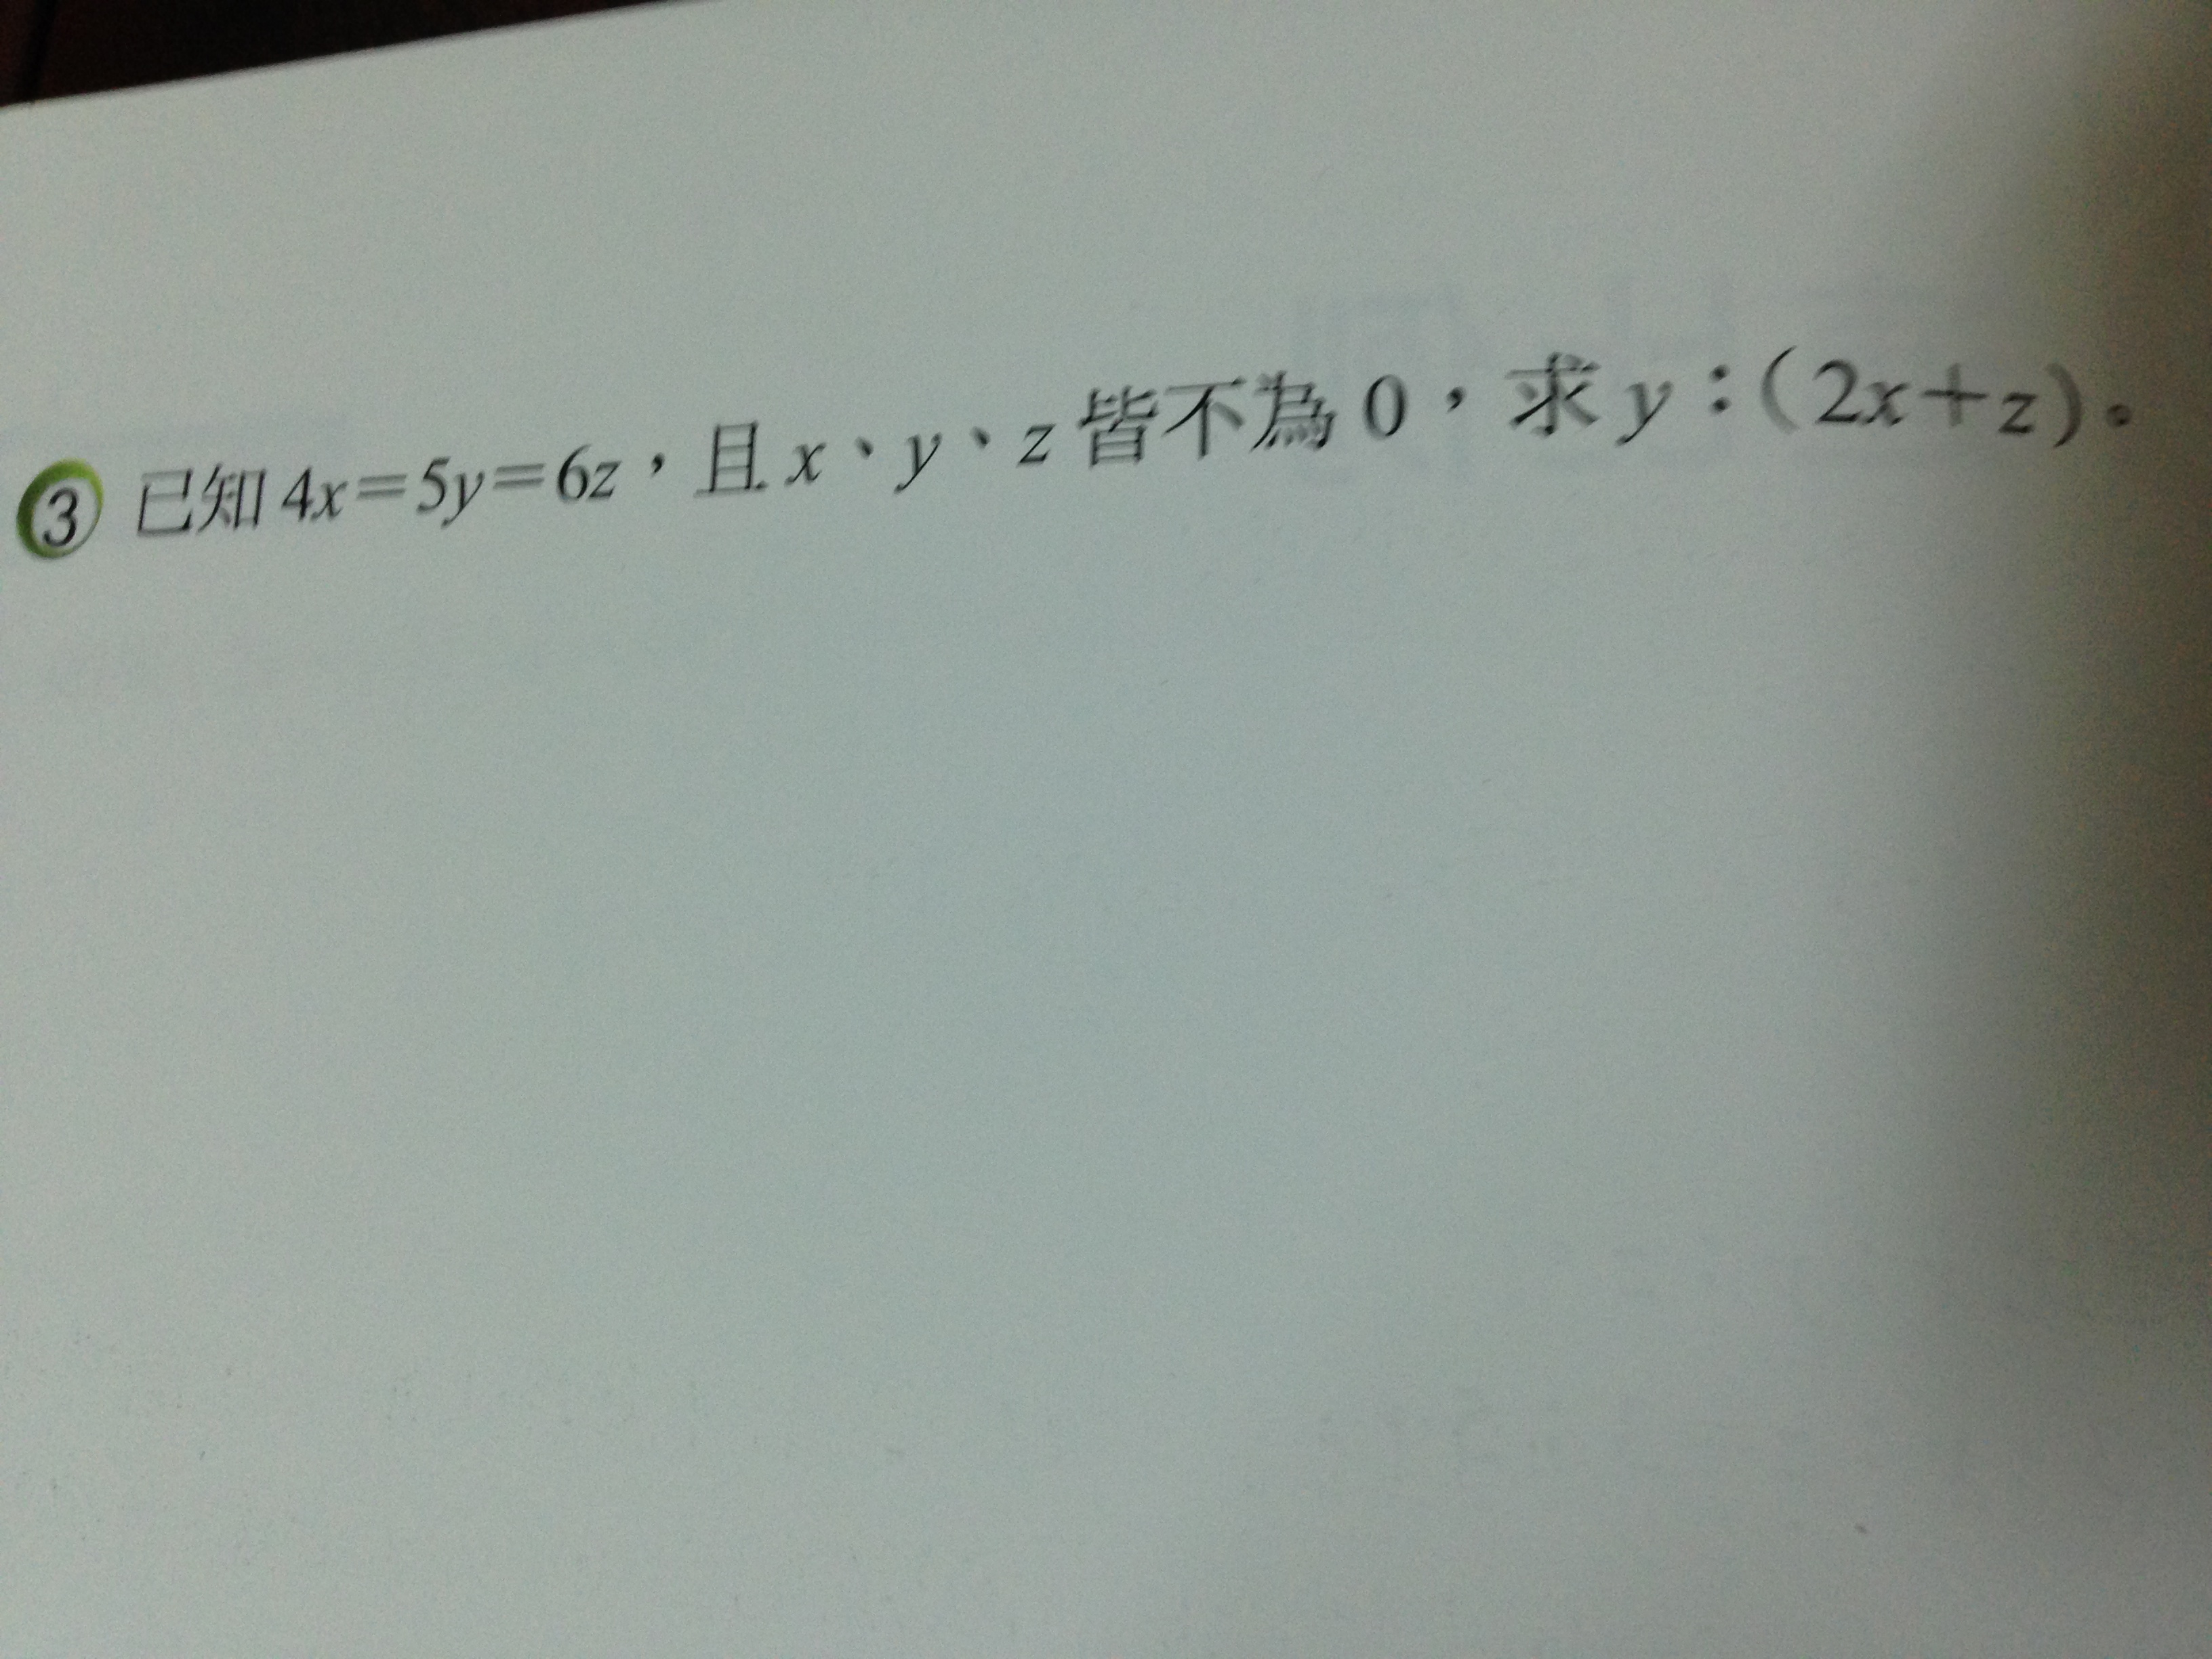 ③ 已知 4x=5y=6z，且 x、y、z 皆不為 0，求 y：(2x+z)。